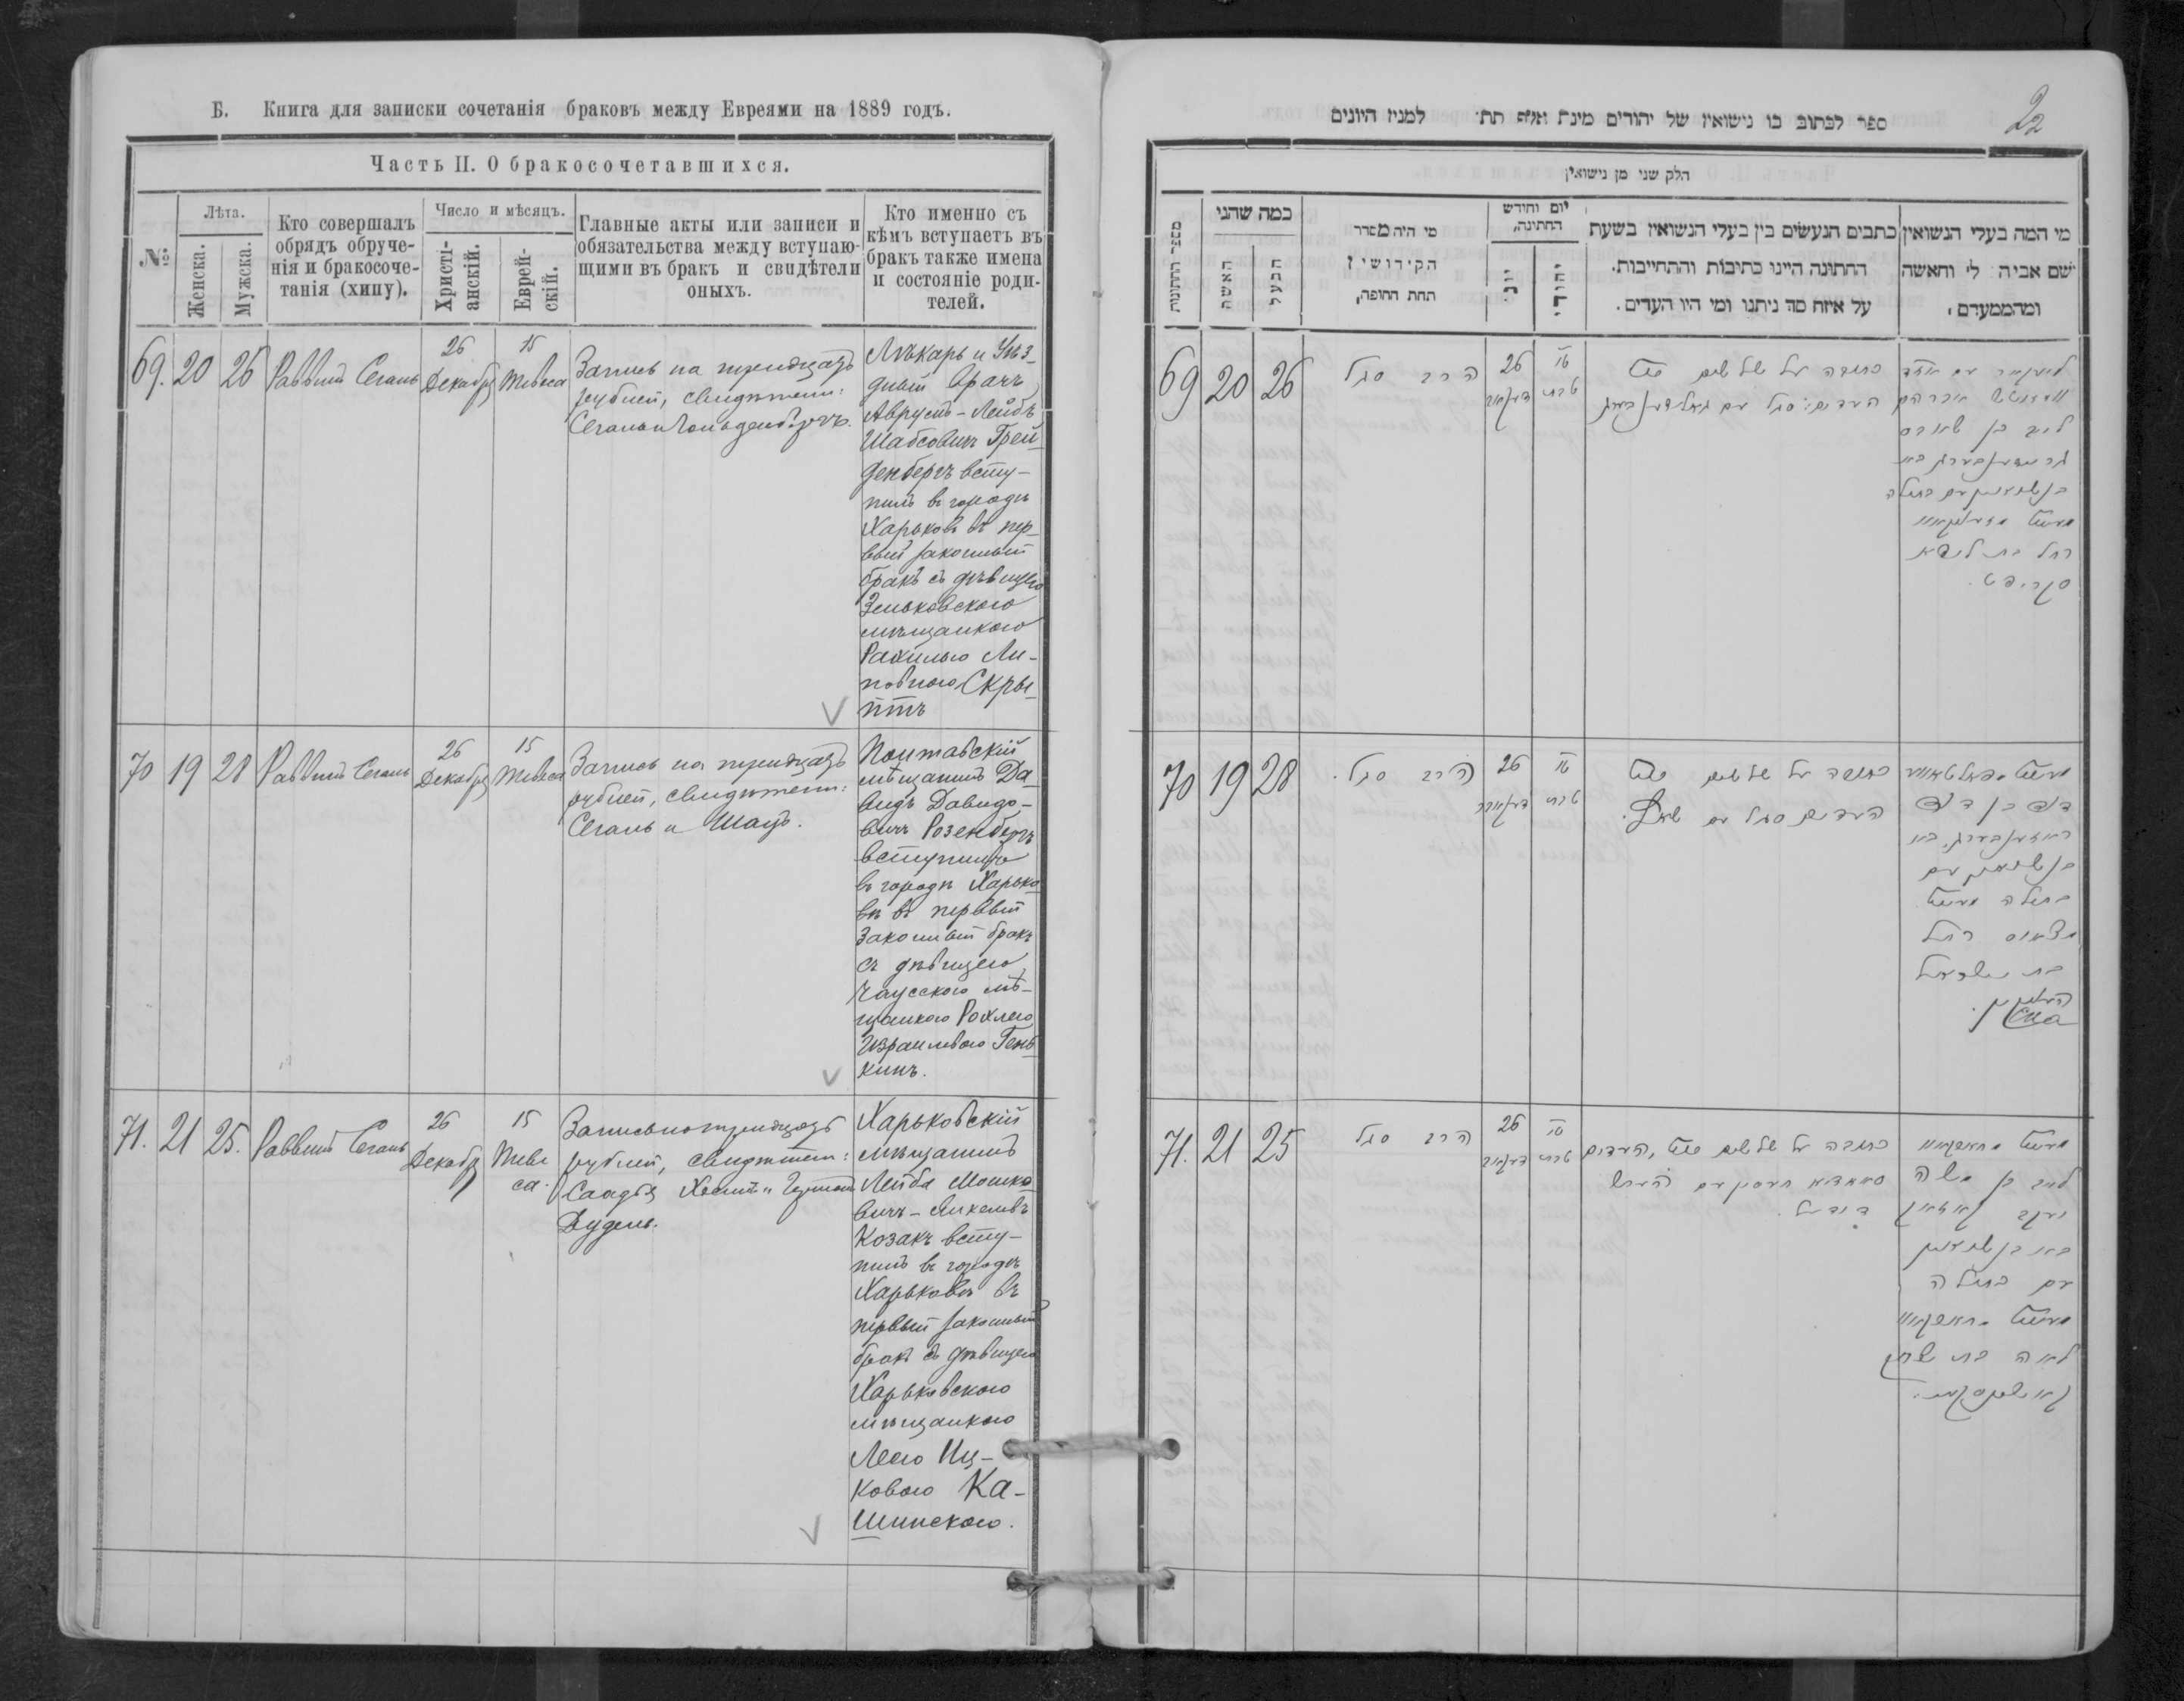 Б. Книга для записки сочетанія браковъ между Евреями на 1889 годъ.
Часть II. О бракосочетавшихся.
№:
Лѣта.
Женска.
Мужска.
Кто совершалъ
обрядъ обруче-
нія и бракосоче-
танія (хипу).
Число и мѣсяцъ.
Христі-
анскій.
Еврей-
скій.
Главные акты или записи и
обязательства между вступаю-
щими въ бракъ и свидѣтели
оныхъ.
Кто именно съ
кѣмъ вступаетъ въ
бракъ также имена
и состояніе роди-
телей.
69. 20 26 Раввинъ Сегаль
26
Декабря
15
Тевеса
Запись на тридцать
рублей, свидѣтели:
Сегаль и Гольденбергъ.
Лѣкарь и Уѣз-
дный Врачъ
Аврумъ-Лейбъ
Шабсовичъ Грей-
денбергъ всту-
пилъ въ городѣ
Харьковѣ въ пер-
вый законный
бракъ съ дѣвицею
Зеньковскою
мѣщанкою
Рахилью Ли-
повною Скры-
птъ
70 19 28 Раввинъ Сегаль
26
Декабря
15
Тевеса
Запись на тридцать
рублей, свидѣтели:
Сегаль и Шацъ.
Полтавскій
мѣщанинъ Да-
видъ Давидо-
вичъ Розенбергъ
вступилъ
въ городѣ Харько-
вѣ въ первый
законный бракъ
съ дѣвицею,
Чаусскою мѣ-
щанкою Рохлею
Израилевою Гень-
кинъ.
71. 21 25. Раввинъ Сегаль
26
Декабря
15
Теве
са.
Запись на тридцать
рублей, свидѣтели:
Саадья
Дудель.
Харьковскій
мѣщанинъ
Лейба Мошко-
вичъ-Янкелевъ
Козакъ всту-
пилъ въ городѣ
Харьковѣ въ
первый законный
бракъ съ дѣвицею
Харьковскою
мѣщанкою
Леею Иц-
ковою Ка-
шинскою.
22
ספר לכתוב בו נישואין של יהודים מינת אלף תת למנין היונים
חלק שני מן נישואין
מספר החתונות
כמה שהני
האשה
הבעל
מי היה מסדר
הקידושין
תחת החופה,
יום וחודש
החתונה,
יוני
יהודי
כתבים הנעשים בין בעלי הנשואין בשעת
החתונה היינו כתיבות והתחייבות.
על איזה סך ניתנו ומי היו העדים.
מי המה בעלי הנשואין
שם אביה לי והאשה
ומהמעמדם
69 20 26
הרב סגל
26
דעקאבר
טו
טבת
כתובה על שלשים
העדים: סגל עם גאלדענבערג
ליב בן
רחל בת ליפא
סקריפט.
70 19 28
הרב סגל.
26
דעקאבר
טו
טבת
כתובה על שלשים
העדים סגל עם שאץ.
דוד בן דוד
ראזענבערג, בא
עם
בתולה
רחל
בת ישראל
71. 21 25
הרב סגל
26
דעקאבר
טו
טבת
כתובה על שלשים, העדים
דודעל.
ליב בן משה
יעקב קאזאק
עם בתולה
לאה בת